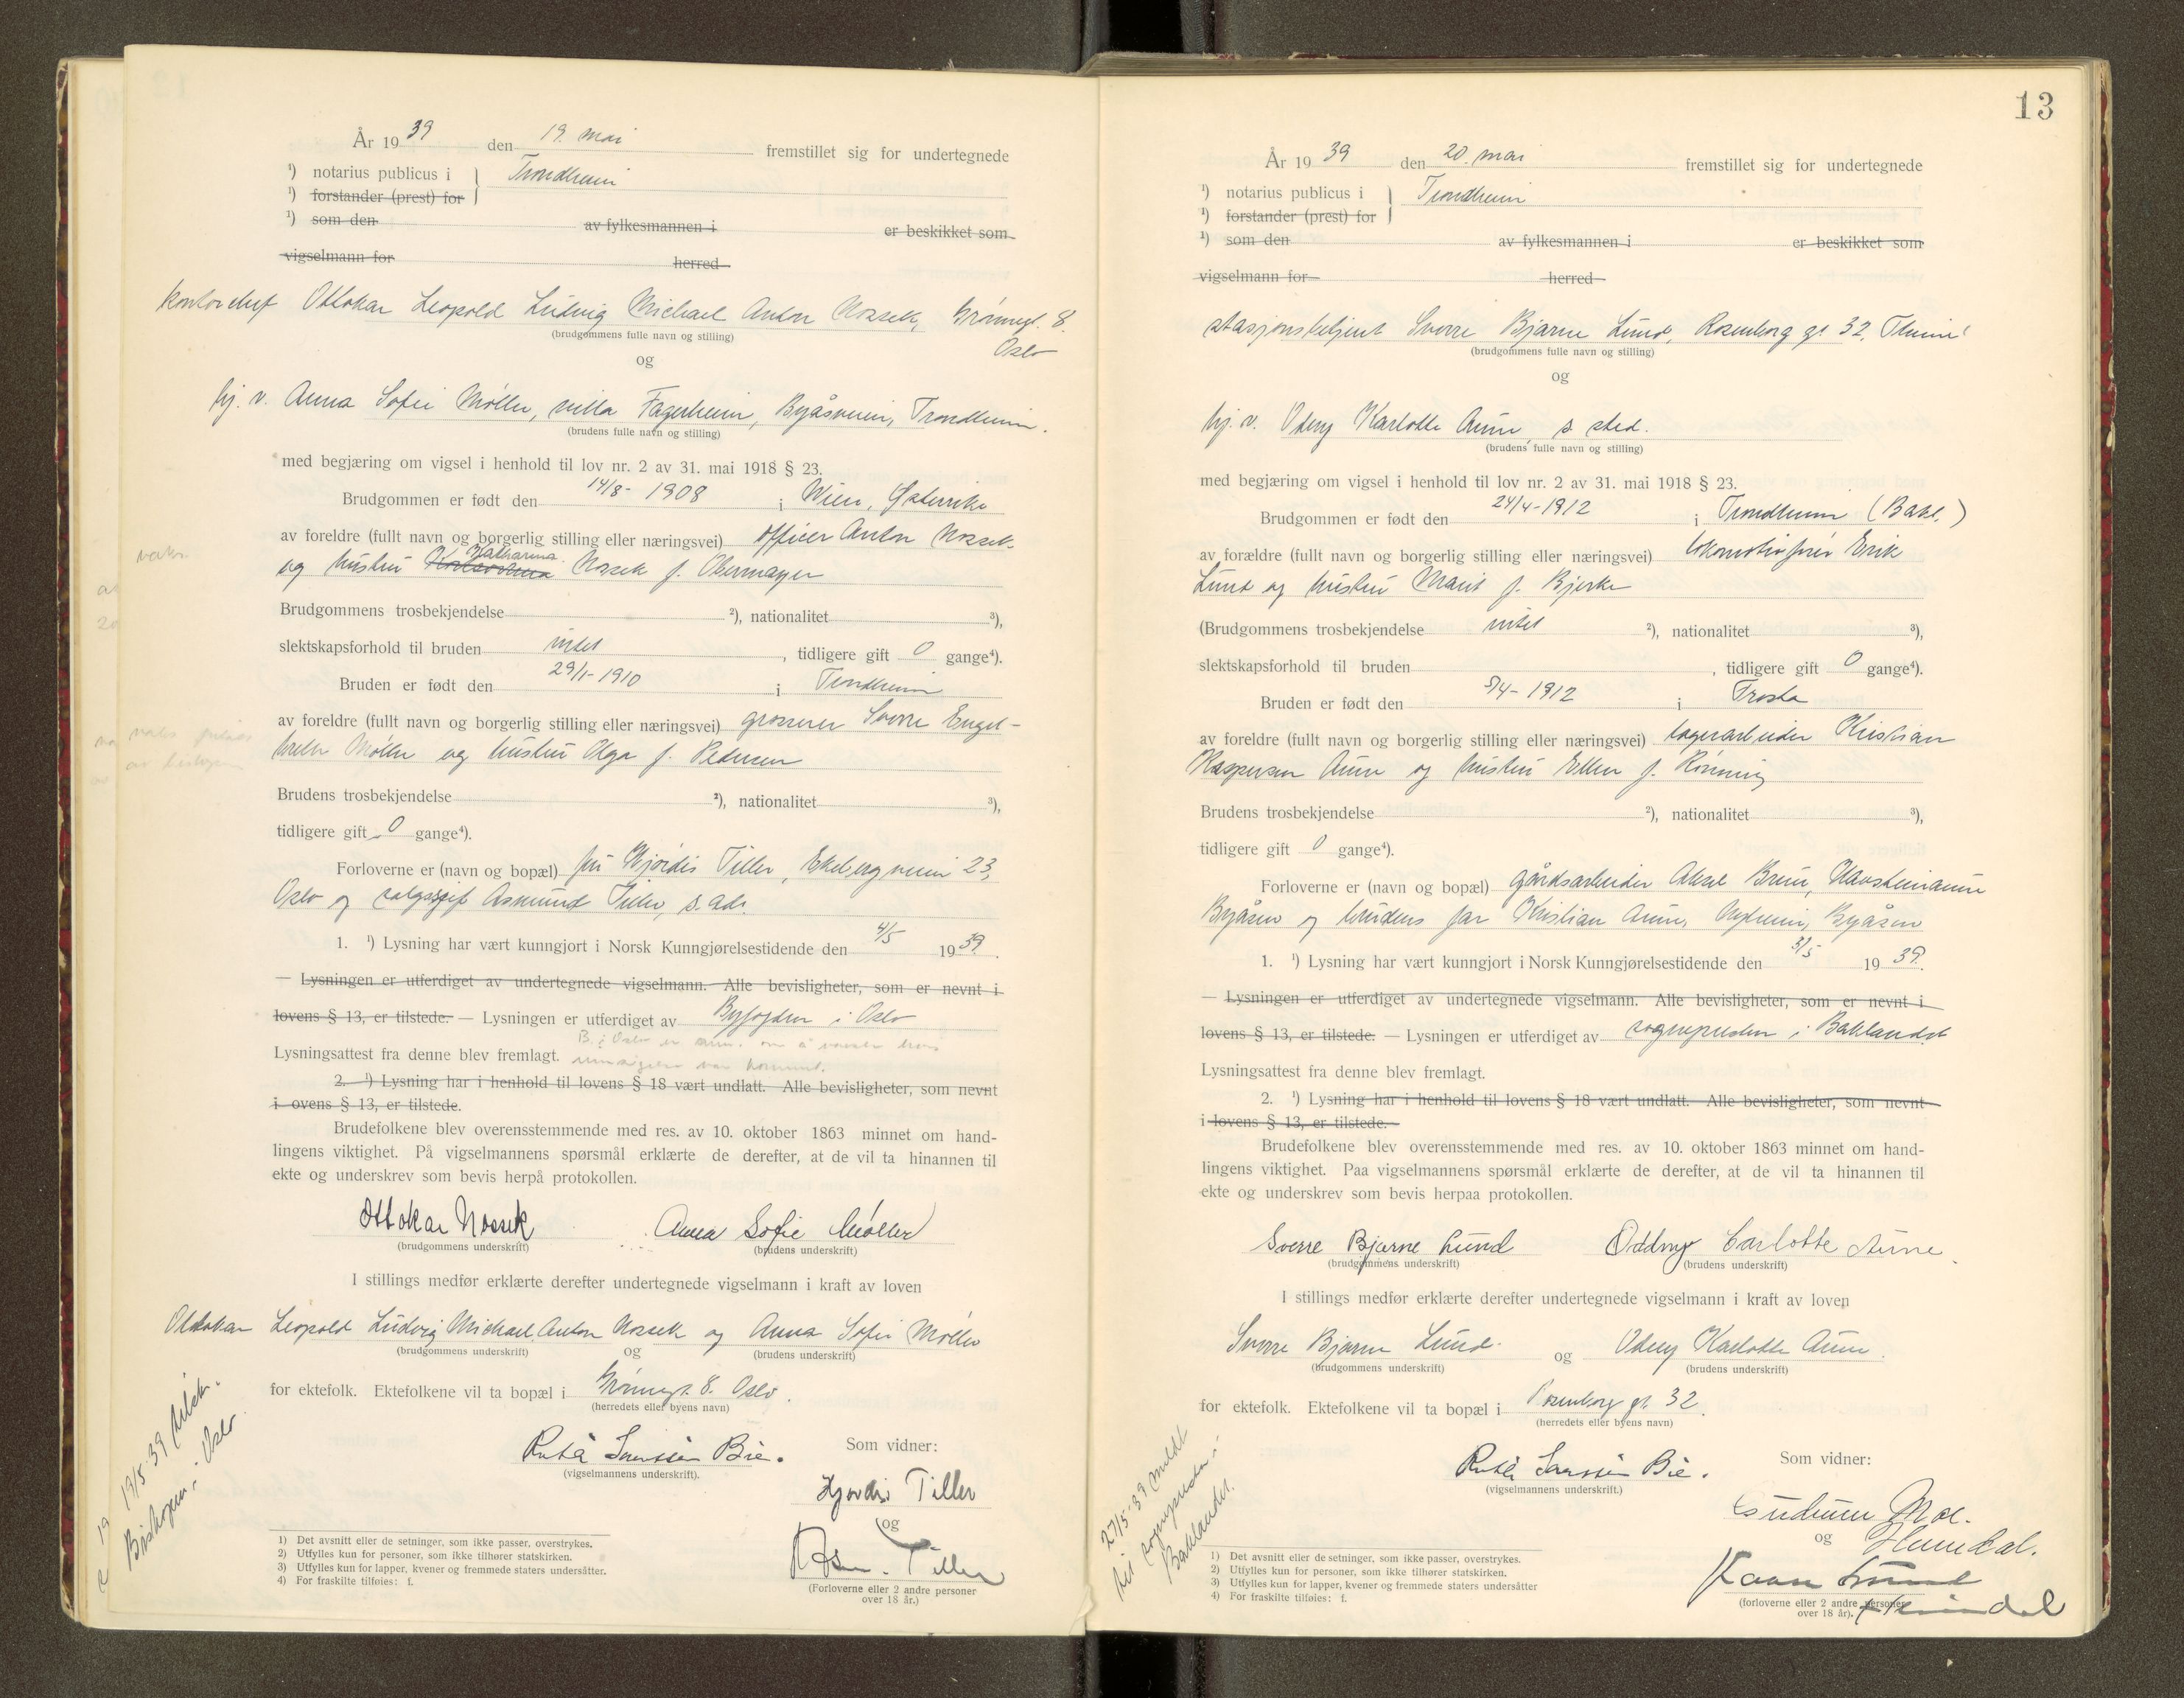 År 1939 den 19. mai fremstillet sig for undertegnede
¹) notarius publicus i } Trondheim
¹) forstander (prest) for
¹) som den av fylkesmannen i er beskikket som
vigselmann for herred
kontorchef Ottokar Leopold Ludvig Michael Anton Nossek, Grønnegt. 8.
Oslo
(brudgommens fulle navn og stilling)
og
hj. v. Anna Sofie Møller, villa Fagerheim, Byåsveien, Trondheim.
(brudens fulle navn og stilling)
med begjæring om vigsel i henhold til lov nr. 2 av 31. mai 1918 § 23.
Brudgommen er født den 14/8- 1908 i Wien, Østerrike
av foreldre (fullt navn og borgerlig stilling eller næringsvei) officer Anton Nossek
og hustru Katharina Nossek f. Obermayer
Brudgommens trosbekjendelse ²), nationalitet ³),
slektskapsforhold til bruden intet, tidligere gift 0 gange⁴).
Bruden er født den 29/1-1910 i Trondheim
av foreldre (fullt navn og borgerlig stilling eller næringsvei) grosserer Sverre Engel-
brekt Møller og hustru Olga f. Pedersen
Brudens trosbekjendelse ²), nationalitet ³),
tidligere gift 0 gange⁴).
Forloverne er (navn og bopæl) fru Hjørdis Tiller, Ekebergveien 23,
Oslo og salgssjef Asmund Tiller, s. adr.
1. ¹) Lysning har vært kunngjort i Norsk Kunngjørelsestidende den 4/5 1939.
— Lysningen er utferdiget av undertegnede vigselmann. Alle bevisligheter, som er nevnt i
lovens § 13, er tilstede. — Lysningen er utferdiget av Byfogden i Oslo
B. i Oslo er anm. om å
Lysningsattest fra denne blev fremlagt.
2. ¹) Lysning har i henhold til lovens § 18 vært undlatt. Alle bevisligheter, som nevnt
i ovens § 13, er tilstede.
Brudefolkene blev overensstemmende med res. av 10. oktober 1863 minnet om hand-
lingens viktighet. På vigselmannens spørsmål erklærte de derefter, at de vil ta hinannen til
ekte og underskrev som bevis herpå protokollen.
Ottokar Nossek Anna Sofie Møller
(brudgommens underskrift) (brudens underskrift)
I stillings medfør erklærte derefter undertegnede vigselmann i kraft av loven
Ottokar Leopold Ludvig Michael Anton Nossek og Anna Sofie Møller
(brudgommens underskrift) og (brudens underskrift)
for ektefolk. Ektefolkene vil ta bopæl i Grønnegt. 8. Oslo.
(herredets eller byens navn)
Ruth Sanssen Bie.
(vigselmannens underskrift).
Som vidner:
Hjørdis Tiller
og
Asm. Tiller
(Forloverne eller 2 andre personer
over 18 år.)
19/5-39
Biskopen i Oslo
1) Det avsnitt eller de setninger, som ikke passer, overstrykes.
2) Utfylles kun for personer, som ikke tilhører statskirken.
3) Utfylles kun for lapper, kvener og fremmede staters undersåtter.
4) For fraskilte tilføies: f.
13
År 1939 den 20. mai fremstillet sig for undertegnede
¹) notarius publicus i } Trondheim
¹) forstander (prest) for
¹) som den av fylkesmannen i er beskikket som
vigselmann for herred
stasjonsbetjent Sverre Bjarne Lund, Rosenborg gt 32, Theim
(brudgommens fulle navn og stilling)
og
hj. v. Oddny Karlotte Aune, s. sted.
(brudens fulle navn og stilling)
med begjæring om vigsel i henhold til lov nr. 2 av 31. mai 1918 § 23.
Brudgommen er født den 24/4-1912 i Trondheim (Bakl.)
av forældre (fullt navn og borgerlig stilling eller næringsvei) lokomotivfører Erik
Lund og hustru Marit f. Bjerke
(Brudgommens trosbekjendelse intet ²), nationalitet ³),
slektskapsforhold til bruden , tidligere gift 0 gange⁴).
Bruden er født den 5/4-1912 i Frosta
av foreldre (fullt navn og borgerlig stilling eller næringsvei) lagerarbeider Kristian
Kaspersen Aune og hustru Ellen f. Rønning
Brudens trosbekjendelse ²), nationalitet ³),
tidligere gift 0 gange⁴).
Forloverne er (navn og bopæl) gårdsarbeider Aksel Breim, Havsteinaune
Byåsen og brudens far Kristian Aune, Nyheim, Byåsen
1. ¹) Lysning har vært kunngjort i Norsk Kunngjørelsestidende den 3/5 1939.
— Lysningen er utferdiget av undertegnede vigselmann. Alle bevisligheter, som er nevnt i
lovens § 13, er tilstede. — Lysningen er utferdiget av sognepresten i Baklandet
Lysningsattest fra denne blev fremlagt.
2. ¹) Lysning har i henhold til lovens § 18 vært undlatt. Alle bevisligheter, som nevnt
i lovens § 13, er tilstede.
Brudefolkene blev overensstemmende med res. av 10. oktober 1863 minnet om hand-
lingens viktighet. Paa vigselmannens spørsmål erklærte de derefter, at de vil ta hinannen til
ekte og underskrev som bevis herpaa protokollen.
Sverre Bjarne Lund Oddny Carlotte Aune.
(brudgommens underskrift) (brudens underskrift)
I stillings medfør erklærte derefter undertegnede vigselmann i kraft av loven
Sverre Bjarne Lund. og Oddny Karlotte Aune.
(brudgommens underskrift) (brudens underskrift)
for ektefolk. Ektefolkene vil ta bopæl i Rosenborg gt. 32.
(herredets eller byens navn)
Ruth Sanssen Bie.
(vigselmannens underskrift.)
Som vidner:
Gudrun Moe.
Hemdal.
og
Kaare
(forloverne eller 2 andre personer
over 18 år).
27/5-39 meldt
til sognepresten i
Baklandet.
1) Det avsnitt eller de setninger, som ikke passer, overstrykes.
2) Utfylles kun for personer, som ikke tilhører statskirken.
3) Utfylles kun for lapper, kvener og fremmede staters undersåtter
4) For fraskilte tilføies: f.